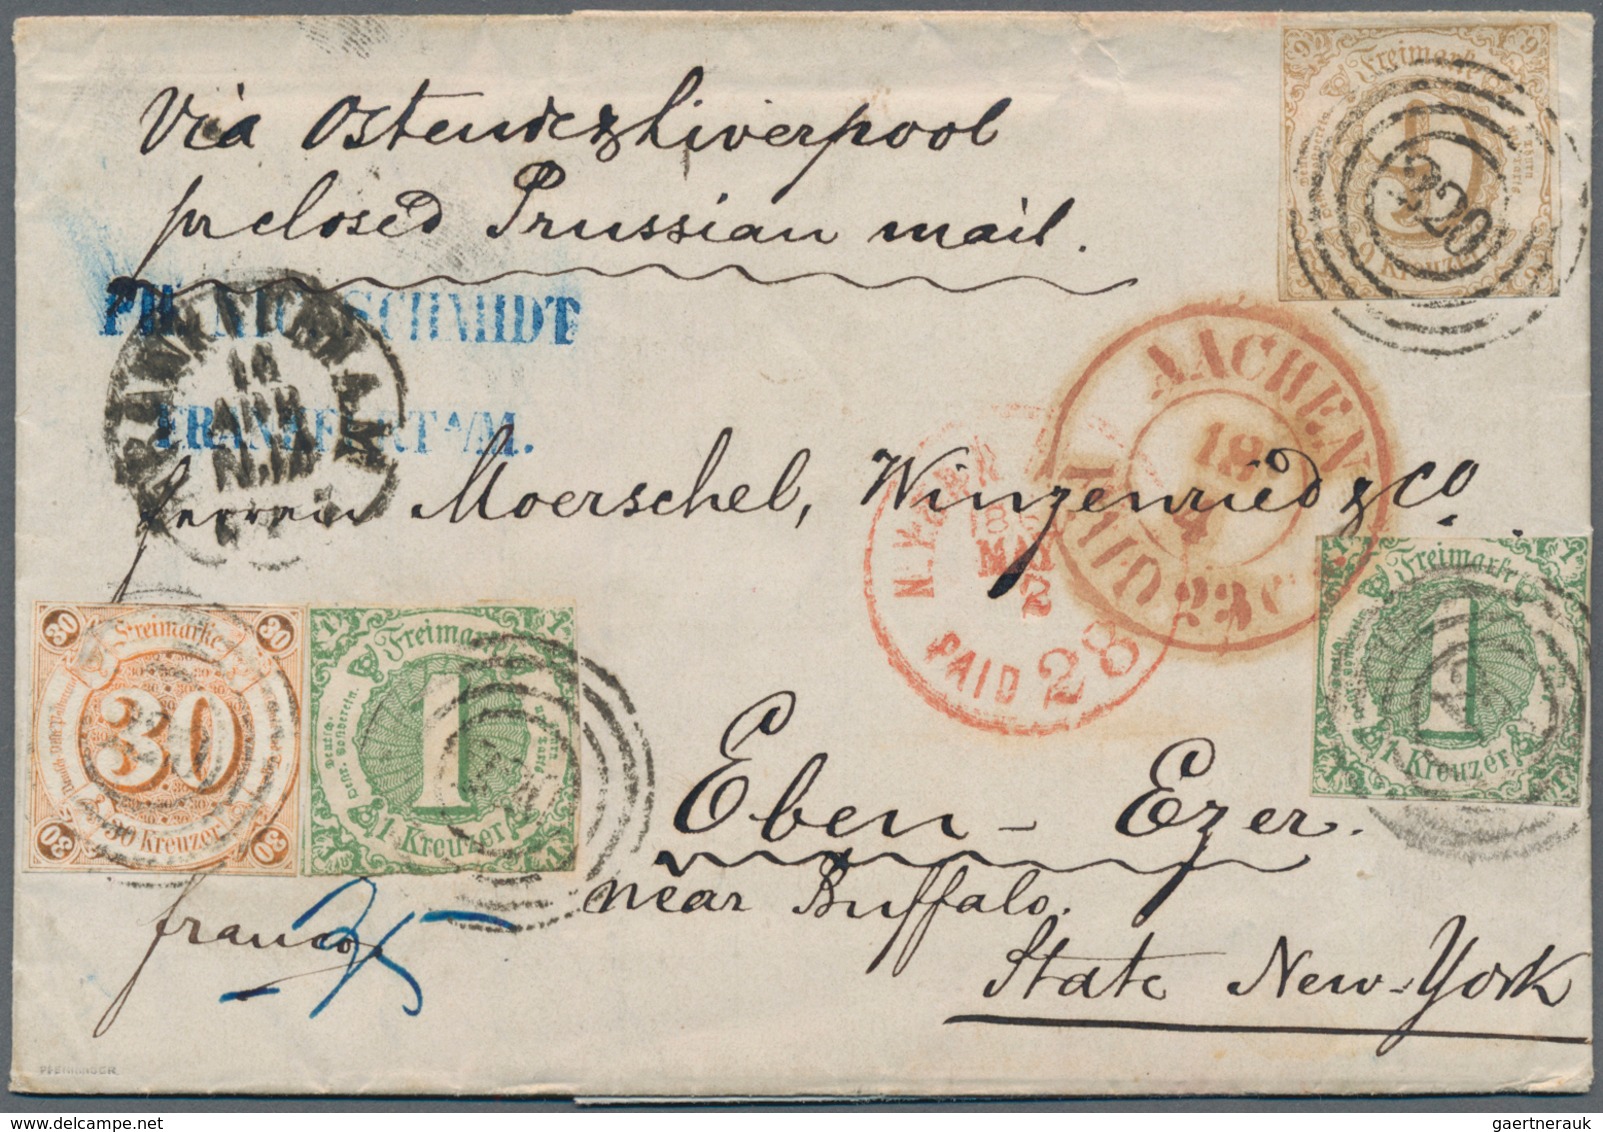 Via Ostende & Liverpool
pr closed Prussian mail.
Freimarke
9
9 Kreuzer
220
PH. NICL. SCHMIDT
FRANKFURT A/M.
16
APR
AACHEN
18
4
PAID 23 C
N. YORK
MAY
2
PAID 28
Herren Moerschel, Winzenried & Co.
30 30
Freimarke
30
30 Kreuzer
30 30
Freimarke
1
1 Kreuzer
Freimarke
1
1 Kreuzer
Eben-Ezer.
near Buffalo.
State New-York
franco
PFENNINGER
gaertnerauk